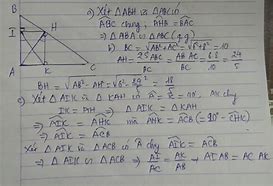 B
I
H
A
K
C
a) Xét △ABH và △ABC có
ABC chung; AHB = BAC
=> △ABH ∽ △ABC (g.g)
b) BC = √AB² + AC² = √6² + 8² = 10
AH = 2SABC / BC = AB.AC / BC = 6.8 / 10 = 24 / 5
BH = √AB² - AH² = 18 / 5
c) Xét △AIK và △KAH có A = K = 90°, AK chung
IK = AH => △AIK = △KAH
=> AIK = AHK mà AHK = ACB (= 90° - CHK)
=> AIK = ACB
Xét △AIK và △ACB có A chung AIK = ACB
=> △AIK ∽ △ACB => AI / AC = AK / AB => AI.AB = AC.AK